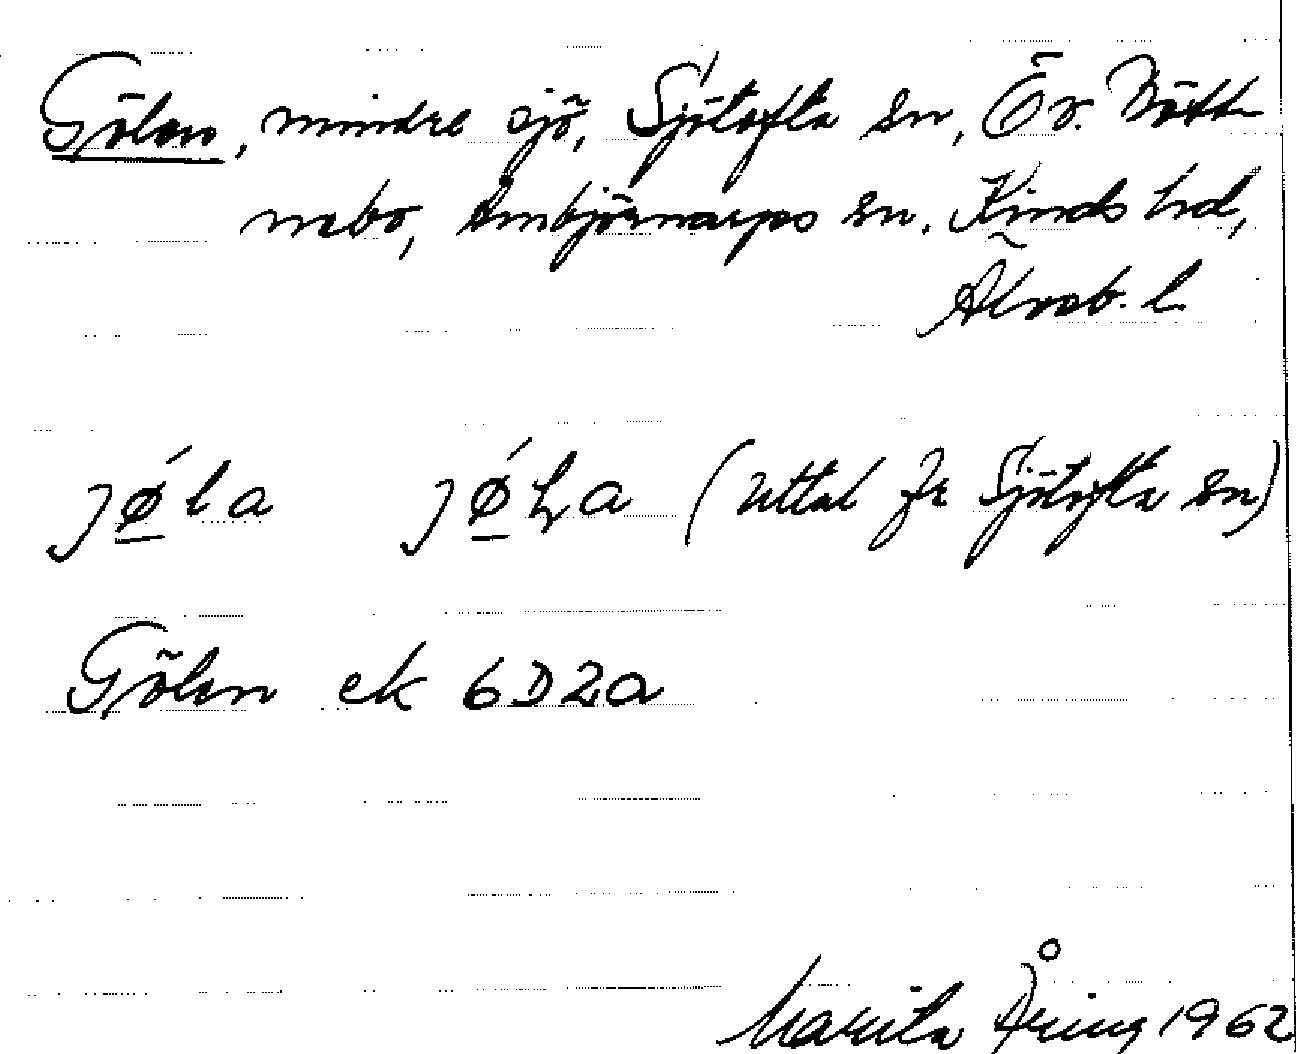 Gölen, mindre sjö, Sjötofta sn, Ör. Nätt
nebo, Ambjörnarps sn. Kinds hd,
Älvsb. l
jǿla jǿɫa (uttal fr Sjötofta sn)
Gölen ek 6D2a
Marita Åring 1962